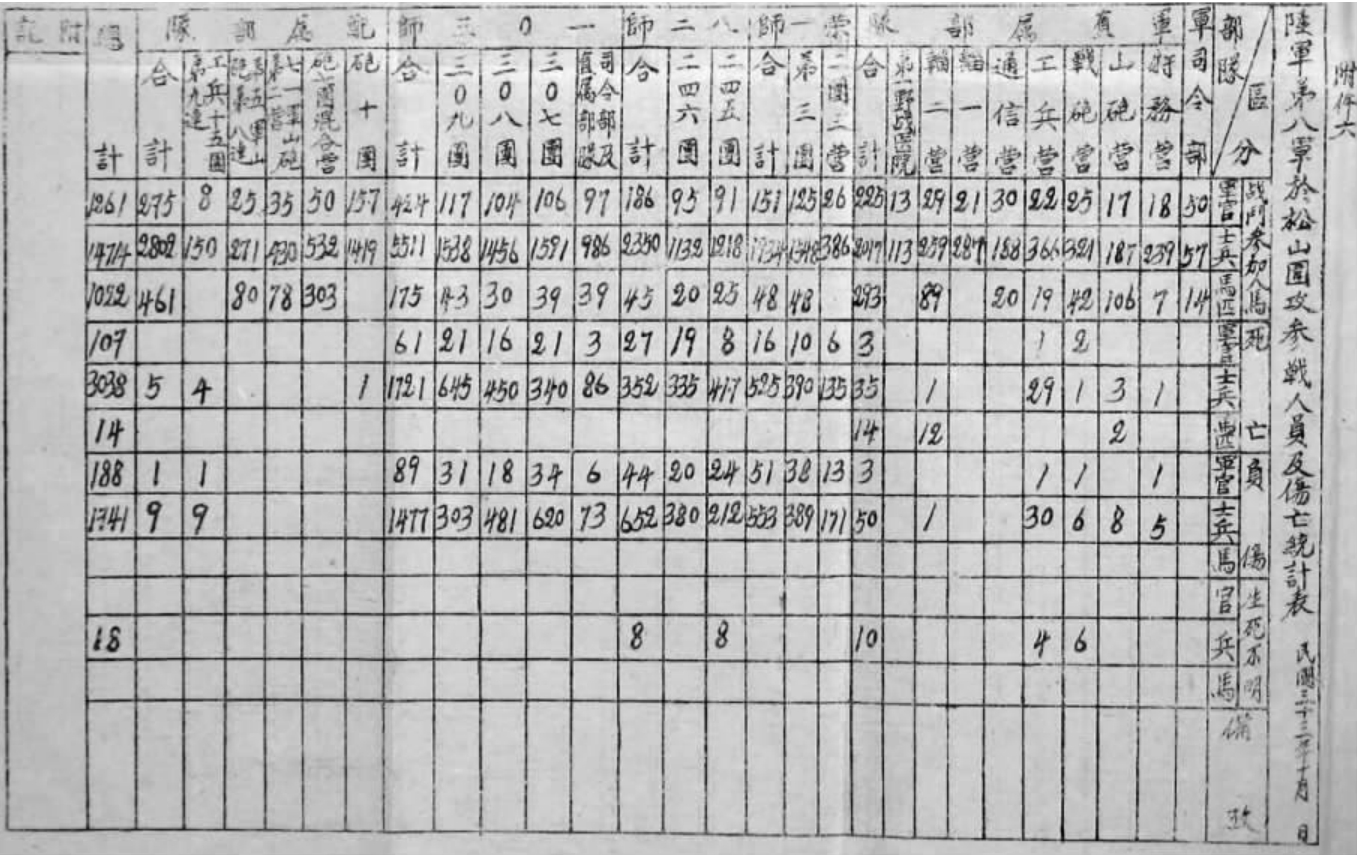 附件六
陸軍第八軍於松山圍攻參戰人員及傷亡統計表 民國三十三年十月 日
部隊 區分
战鬥參加人馬 死亡 負傷 生死不明 備攷
軍官 士兵 馬匹 軍官 士兵 馬匹 軍官 士兵 馬 官 兵 馬
軍司令部 50 57 14
軍直属部隊
特務營 18 239 7 1 1 5
山砲營 17 187 106 3 2 8
戰砲營 25 321 42 2 1 1 6 6
工兵營 22 366 19 1 29 1 30 4
通信營 30 188 20
輜一營 21 287
輜二營 29 259 89 1 12 1
野戰医院 13 113
合計 225 2017 293 3 35 14 3 50 10
榮一師
二團三營 26 386 6 135 13 171
第三團 125 1548 48 10 390 38 389
合計 151 1934 48 16 525 51 553
八二師
二四五團 91 1218 25 8 417 24 212 8
二四六團 95 1132 20 19 335 20 380
合計 186 2350 45 27 352 44 652 8
一0三師
司令部及直属部隊 97 986 39 3 86 6 73
三0七團 106 1521 39 21 340 34 620
三0八團 104 1456 30 16 450 18 481
三0九團 117 1538 43 21 645 31 303
合計 424 5511 175 61 1721 89 1477
配属部隊
砲十團 157 1419 1
砲七團混合營 50 532 303
七一軍山砲第二營 35 430 78
第五軍山砲第八連 25 271 80
工兵十五團第九連 8 150 4 1 9
合計 275 2802 461 5 1 9
總計 1261 14714 1022 107 3038 14 188 1741 18
附記